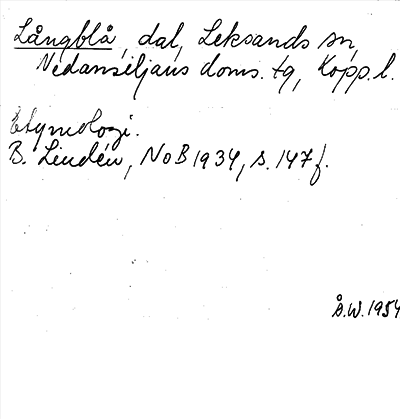 Långblå, dal, Leksands sn,
Nedansiljans doms. tg, Kopp. l.
Etymologi.
B. Lindén, NoB 1934, s. 147 f.
Å.W. 1954